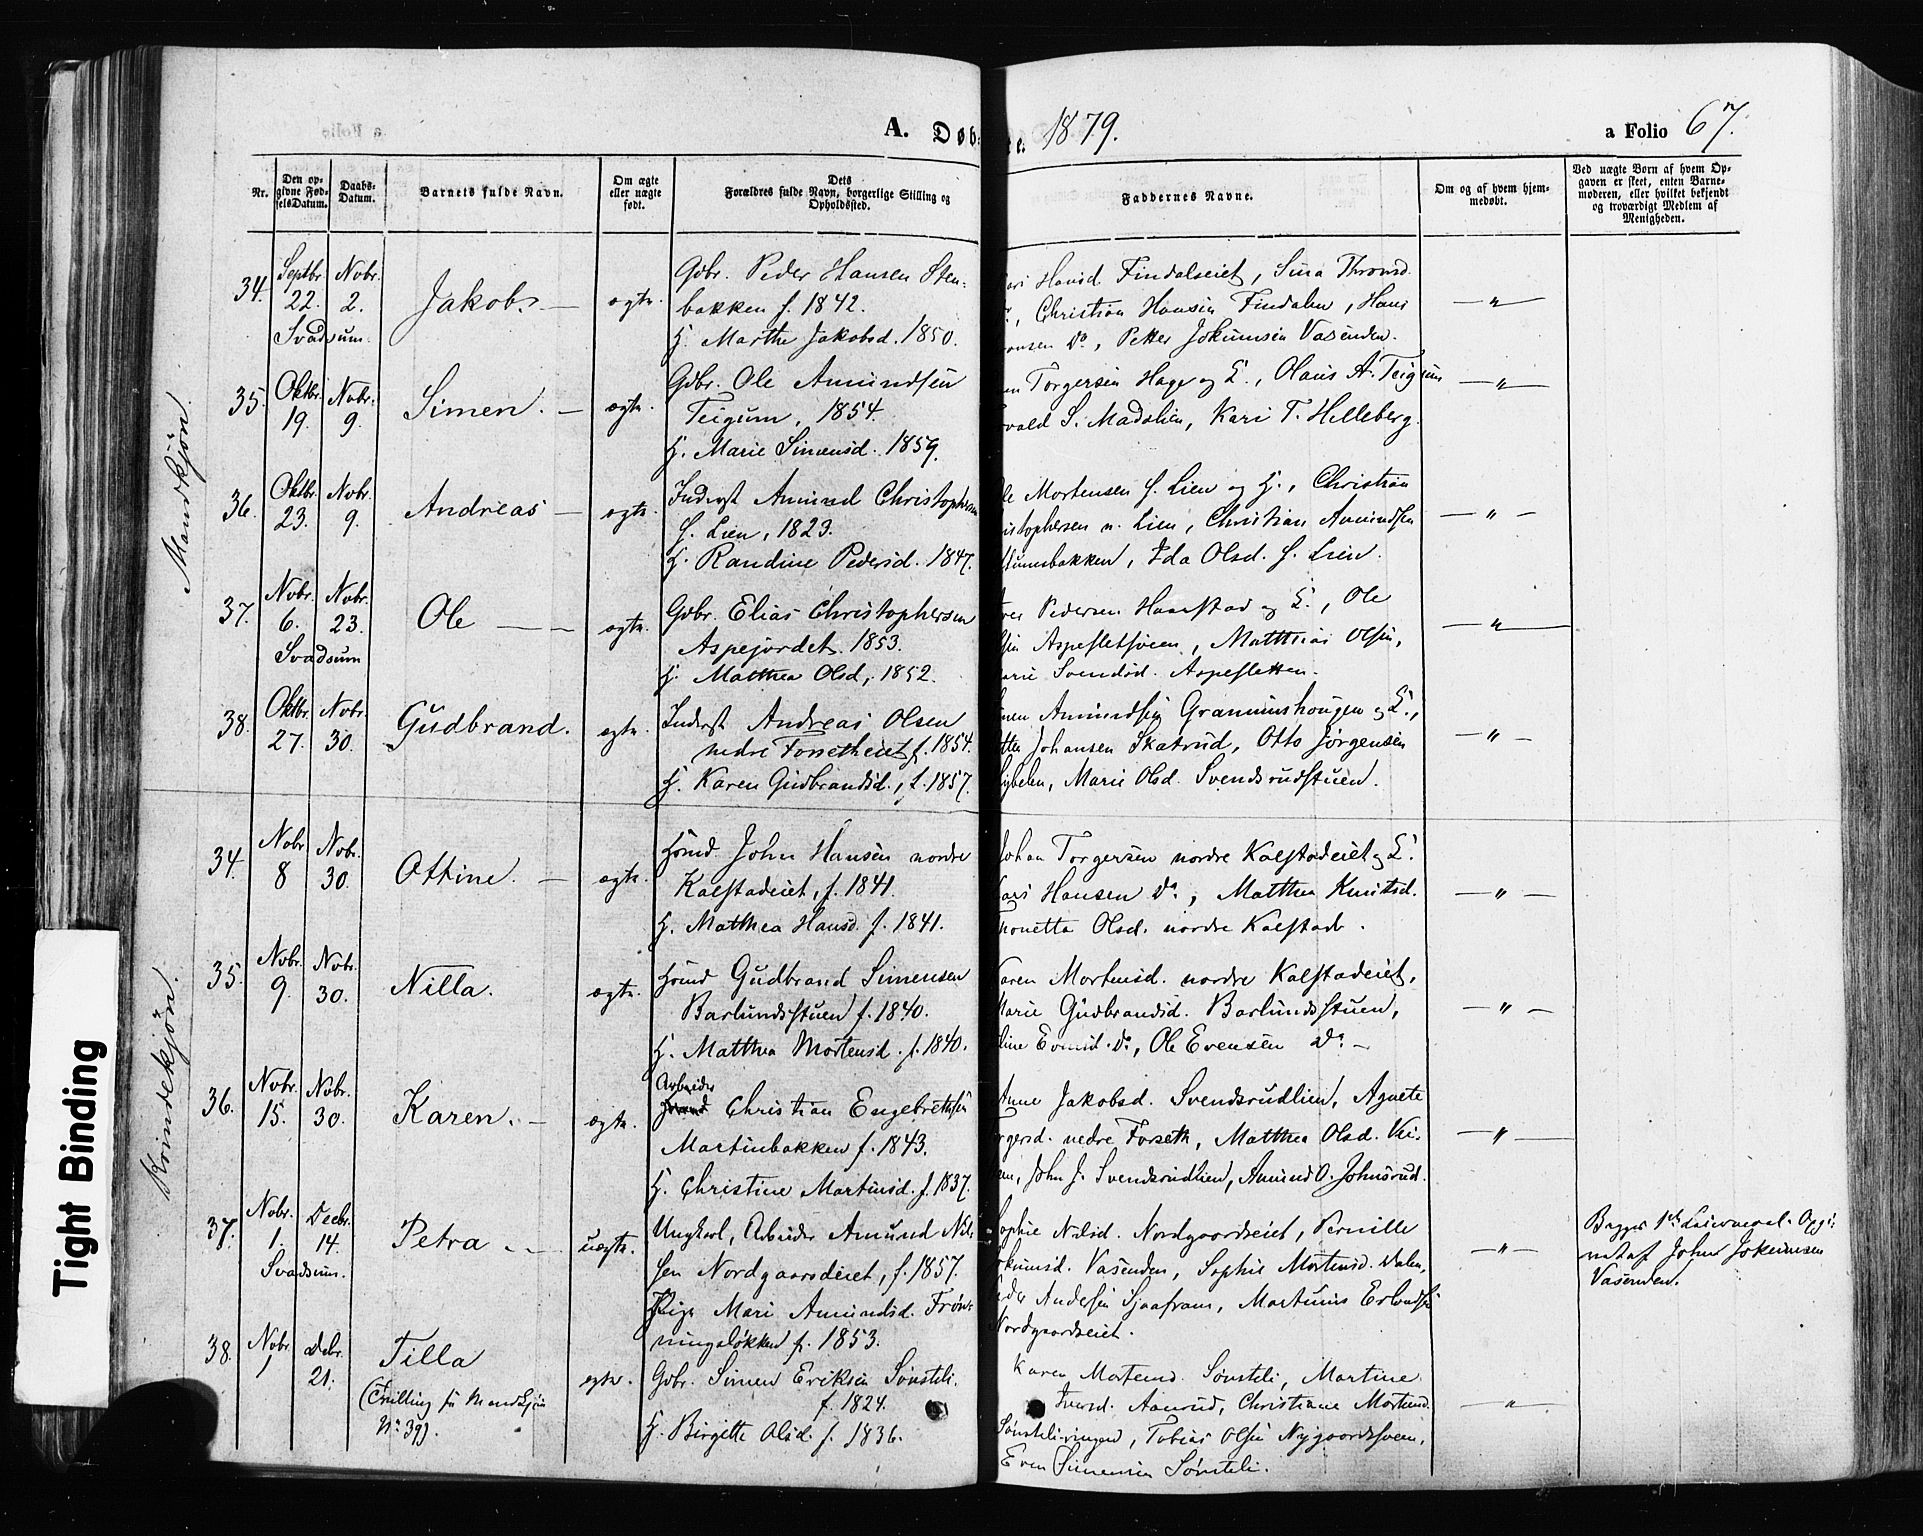 A. Døb- e. 1879.
a Folio 67.
Nr.
Den opgivne FødselsDatum.
Daabs-Datum.
Barnets fulde Navn.
Om ægte eller uægte født.
Dets Forældres fulde Navn, borgerlige Stilling og Opholdssted.
Faddernes Navne.
Om og af hvem hjemmedøbt.
Ved uægte Børn af hvem Opgaven er skeet, enten Barnemoderen, eller hvilket bekjendt og troværdigt Medlem af Menigheden.
Mandkjön.
34. Septbr. 22. Nobr. 2. Jakob. — ægte.
Svadsum.
Gdbr. Peder Hansen Sten-
bakken f. 1842.
H. Marthe Jakobsd. 1850.
Hansd. Findalseiet, Sina Thronsd.
Christian Hansen Findalen, Hans
Do, Petter Jokumsen Vasenden.
— " —
35. Oktbr. 19. Nobr. 9. Simen. — ægte.
Gdbr. Ole Amundsen
Teigum, 1854.
H. Marie Simensd. 1859.
Torgersen Hage og H., Olaus A. Teigum
S. Madslien, Kari T. Helleberg.
— " —
36. Oktbr. 23. Nobr. 9. Andreas — ægte.
Inderst Amund Christophersen
S. Lien, 1823.
H. Randine Pedersd. 1847.
Mortensen S. Lien og H., Christian
n. Lien, Christian Amundsen
Ida Olsd. S. Lien.
— " —
37. Nobr. 6. Nobr. 23. Ole — ægte.
Svadsum
Gdbr. Elias Christophersen
Aspejordet. 1853.
H. Matthea Olsd, 1852.
Pedersen Haarstad og H., Ole
Aspesletsveen, Matthias Olsen,
Svendsd. Aspesletten.
— " —
38. Oktbr. 27. Nobr. 30. Gudbrand. ægte.
Inderst Andreas Olsen
nedre Forsetheiet f. 1854.
H. Karen Gudbrandsd., f. 1857.
Amundsen Gramunshougen og H.,
Johansen Skatrud, Otto Jörgensen
Marie Olsd. Svendsrudstuen.
— " —
Kvindekjön.
34. Nobr. 8 Nobr. 30. Ottine. — ægte.
Hsmd. John Hansen nordre
Kalstadeiet, f. 1841.
H. Matthea Hansd. f. 1841.
Johan Torgersen nordre Kalstadeiet og H.
Hansen Do, Matthea Knutsd.
Olsd. nordre Kalstad.
— " —
35. Nobr. 9. Nobr. 30. Nilla. ægte.
Hsmd Gudbrand Simensen
Barlundsstuen f. 1840.
H. Matthea Mortensd. f. 1840.
Karen Mortensd. nordre Kalstadeiet,
Marie Gudbrandsd. Barlundsstuen,
Do, Ole Evensen Do —
— " —
36. Nobr. 15. Nobr. 30. Karen. — ægte.
Arbeider
Christian Engebretsen
Martinbakken f. 1843.
H. Christine Martinsd. f. 1837.
Anne Jakobsd. Svendsrudlien, Agnete
nedre Forseth, Matthea Olsd.
John J. Svendsrudlien, Amund O. Johnsrud.
— " —
37. Nobr. 1. Decbr. 14. Petra — uægte.
Svadsum.
Ungkarl, Arbeider Amund Nil-
sen Nordgaardseiet, f. 1857.
Pige Mari Amundsd. Frön-
ningsløkken f. 1853.
Sophie Nilsd. Nordgaardseiet, Pernille
Vasenden, Sophie Mortensd. Dalen,
Andersen Sjaafram, Martinus Erlandsen
Nordgaardseiet.
— " —
Begges 1ste Leiermaal. Opgi-
vet af John Jokumsen
Vasenden.
38. Nobr. 1 Debr. 21. Tilla ægte.
(Tvilling fr Mandkjön
No 39).
Gdbr. Simen Eriksen Sönsteli.
f. 1824.
H. Birgitte Olsd. f. 1836.
Karen Mortensd. Sönsteli, Martine
Iversd. Aanrud, Christiane Mortensd.
Sönstelisvingen, Tobias Olsen Nygaardssveen,
Even Simensen Sönsteli.
— " —
Tight Binding